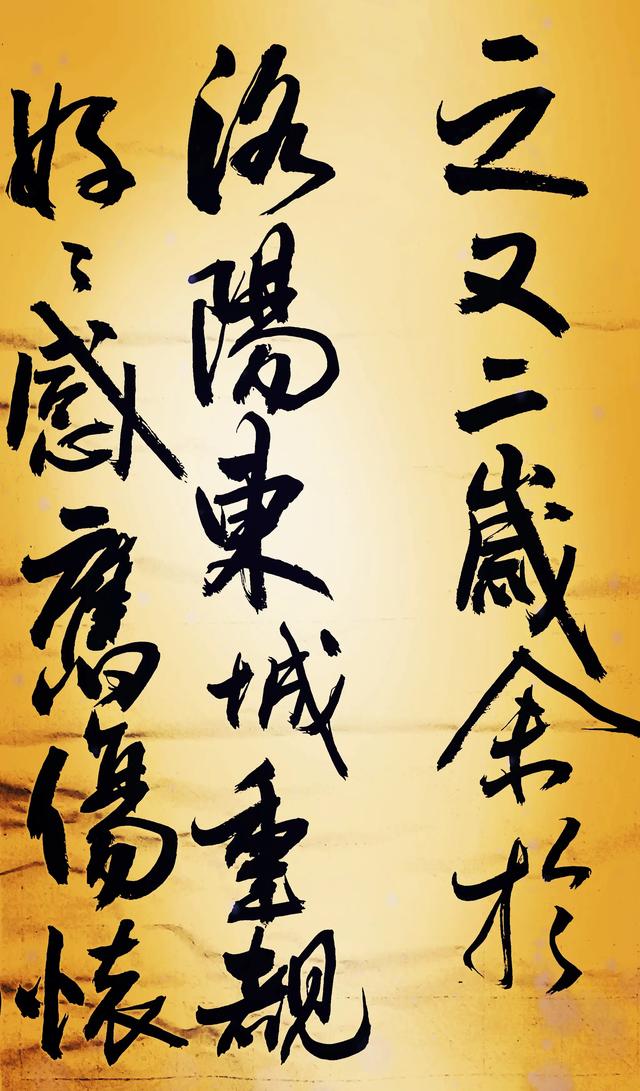 之又二歲余於
洛陽東城重覩
好々感舊傷懷